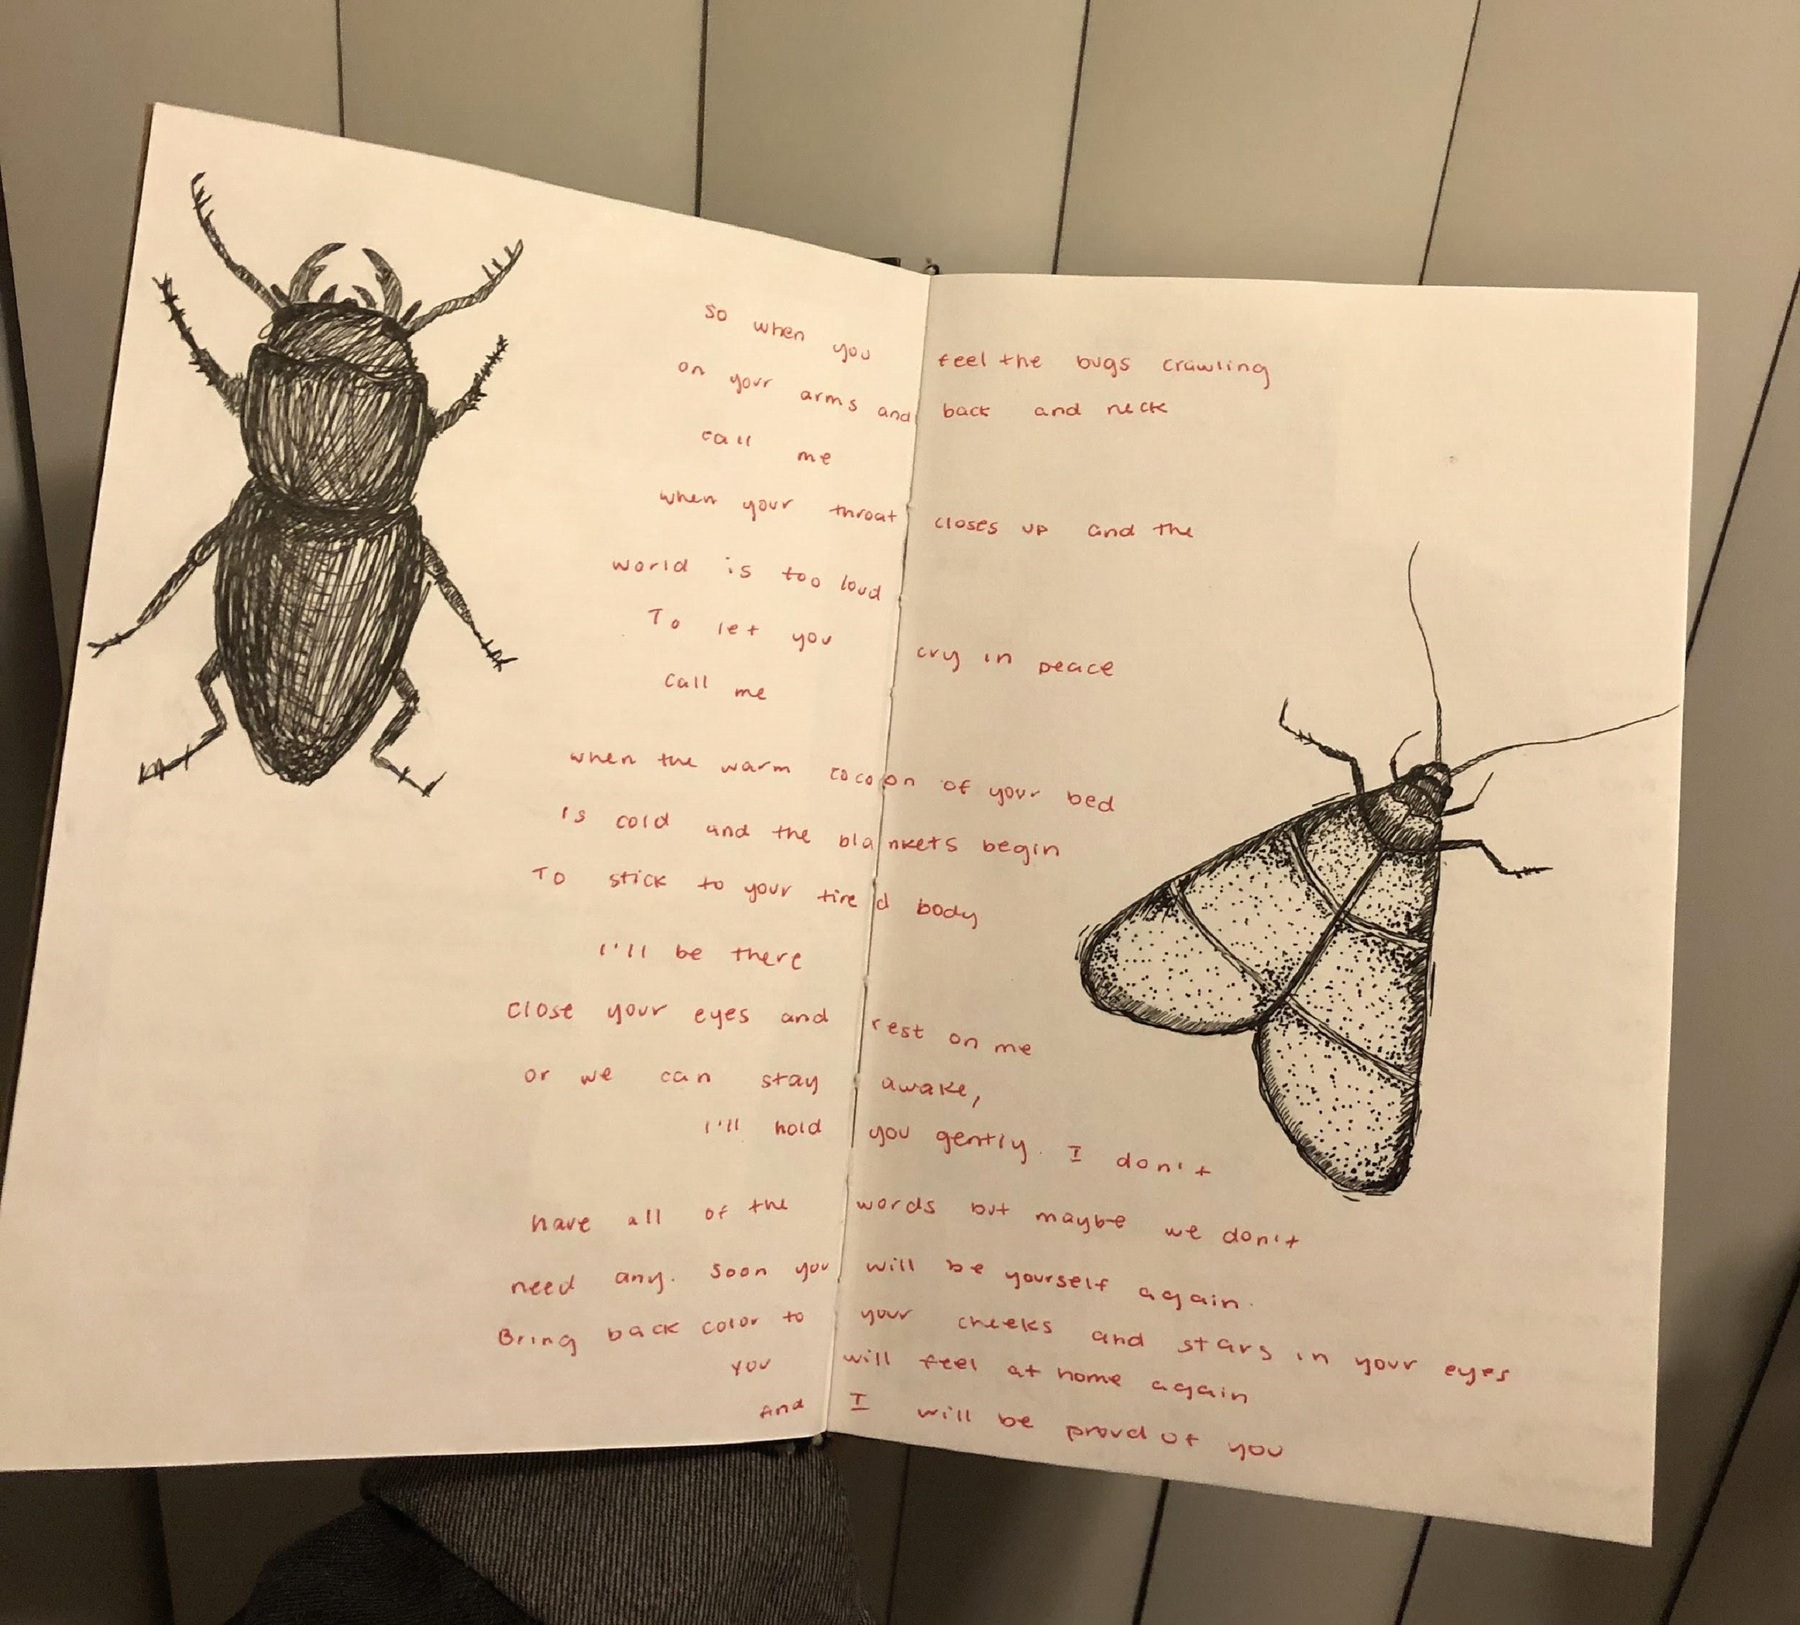 So when you feel the bugs crawling
on your arms and back and neck
call me
when your throat closes up and the
world is too loud
To let you cry in peace
call me
when the warm cocoon of your bed
is cold and the blankets begin
To stick to your tired body
I'll be there
close your eyes and rest on me
or we can stay awake,
I'll hold you gently. I don't
have all of the words but maybe we don't
need any. Soon you will be yourself again.
Bring back color to your cheeks and stars in your eyes
you will feel at home again
And I will be proud of you